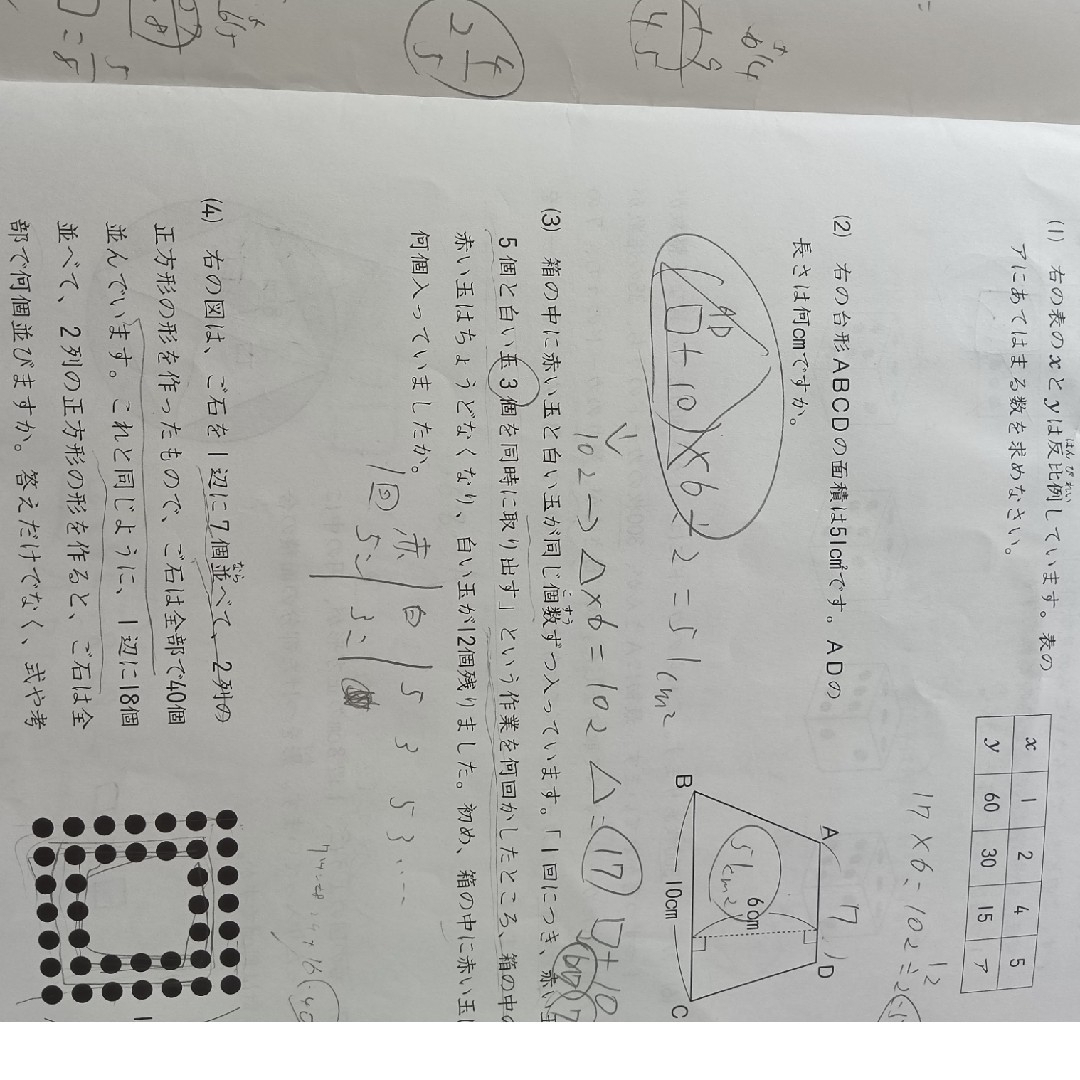 (1) 右の表のxとyは反比例しています。表の
はん ぴ れい
アにあてはまる数を求めなさい。
x 1 2 4 5
y 60 30 15 ア
17×6=102÷2
(2) 右の台形ABCDの面積は51cm²です。ADの
長さは何cmですか。
AD
(□+10)×6÷2=51cm2
102→△×6=102 △=17
□+10
A D
B C
7
51cm2
6cm
10cm
(3) 箱の中に赤い玉と白い玉が同じ個数ずつ入っています。「1回につき、赤い玉
こすう
5個と白い玉3個を同時に取り出す」という作業を何回かしたところ、箱の中の
赤い玉はちょうどなくなり、白い玉が12個残りました。初め、箱の中に赤い玉は
何個入っていましたか。
赤 白
1回 5こ 3こ
5 3 5 3
(4) 右の図は、ご石を1辺に7個並べて、2列の
なら
正方形の形を作ったもので、ご石は全部で40個
並んでいます。これと同じように、1辺に18個
並べて、2列の正方形の形を作ると、ご石は全
部で何個並びますか。答えだけでなく、式や考